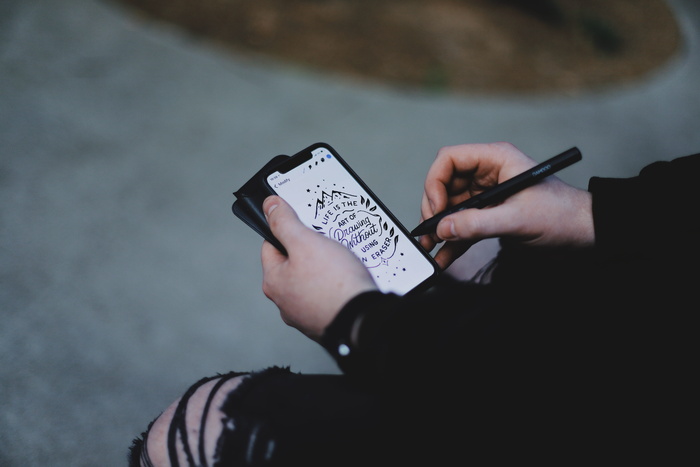 LIFE IS THE
ART OF
Drawing
Without
USING
AN ERASER